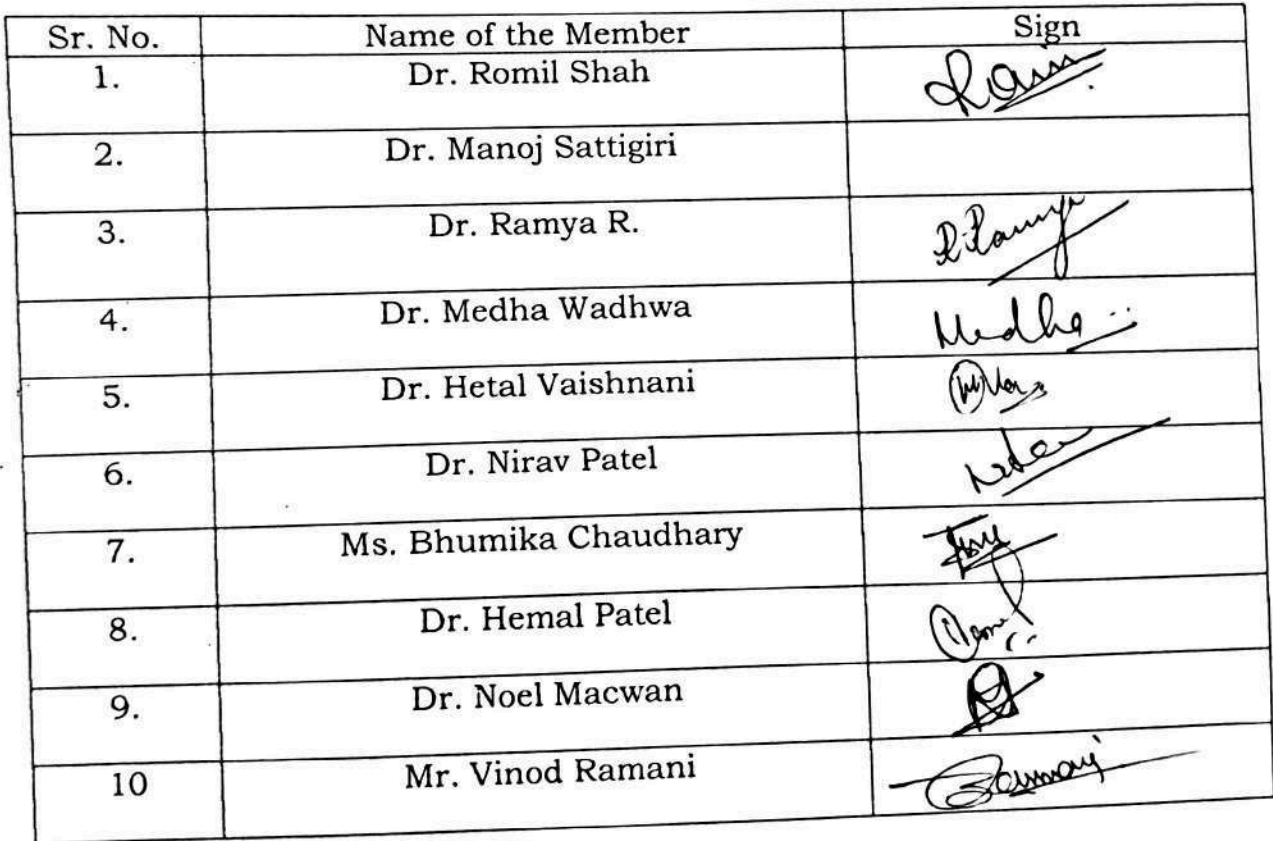 Sr. No. Name of the Member Sign
1. Dr. Romil Shah
2. Dr. Manoj Sattigiri
3. Dr. Ramya R. R. Ramya
4. Dr. Medha Wadhwa Medha
5. Dr. Hetal Vaishnani
6. Dr. Nirav Patel
7. Ms. Bhumika Chaudhary
8. Dr. Hemal Patel
9. Dr. Noel Macwan
10 Mr. Vinod Ramani